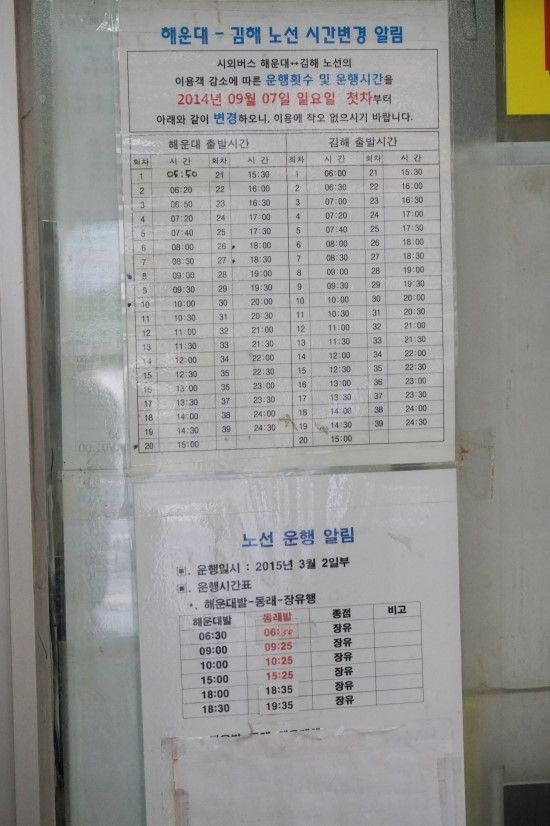 해운대 - 김해 노선 시간변경 알림
시외버스 해운대↔김해 노선의
이용객 감소에 따른 운행횟수 및 운행시간을
2014년 09월 07일 일요일 첫차부터
아래와 같이 변경하오니, 이용에 착오 없으시기 바랍니다.
해운대 출발시간 김해 출발시간
회차 시 간 회차 시 간 회차 시 간 회차 시 간
1 05:50 21 15:30 1 06:00 21 15:30
2 06:20 22 16:00 2 06:30 22 16:00
3 06:50 23 16:30 3 07:00 23 16:30
4 07:20 24 17:00 4 07:20 24 17:00
5 07:40 25 17:30 5 07:40 25 17:30
6 08:00 26 18:00 6 08:00 26 18:00
7 08:30 27 18:30 7 08:30 27 18:30
8 09:00 28 19:00 8 09:00 28 19:00
9 09:30 29 19:30 9 09:30 29 19:30
10 10:00 30 20:00 10 10:00 30 20:00
11 10:30 31 20:30 11 10:30 31 20:30
12 11:00 32 21:00 12 11:00 32 21:00
13 11:30 33 21:30 13 11:30 33 21:30
14 12:00 34 22:00 14 12:00 34 22:00
15 12:30 35 22:30 15 12:30 35 22:30
16 13:00 36 23:00 16 13:00 36 23:00
17 13:30 37 23:30 17 13:30 37 23:30
18 14:00 38 24:00 18 14:00 38 24:00
19 14:30 39 24:30 19 14:30 39 24:30
20 15:00 20 15:00
노선 운행 알림
▣. 운행일시 : 2015년 3월 2일부
▣. 운행시간표
*. 해운대발-동래-장유행
해운대발 동래발 종점 비고
06:30 06:50 장유
09:00 09:25 장유
10:00 10:25 장유
15:00 15:25 장유
18:00 18:35 장유
18:30 19:35 장유